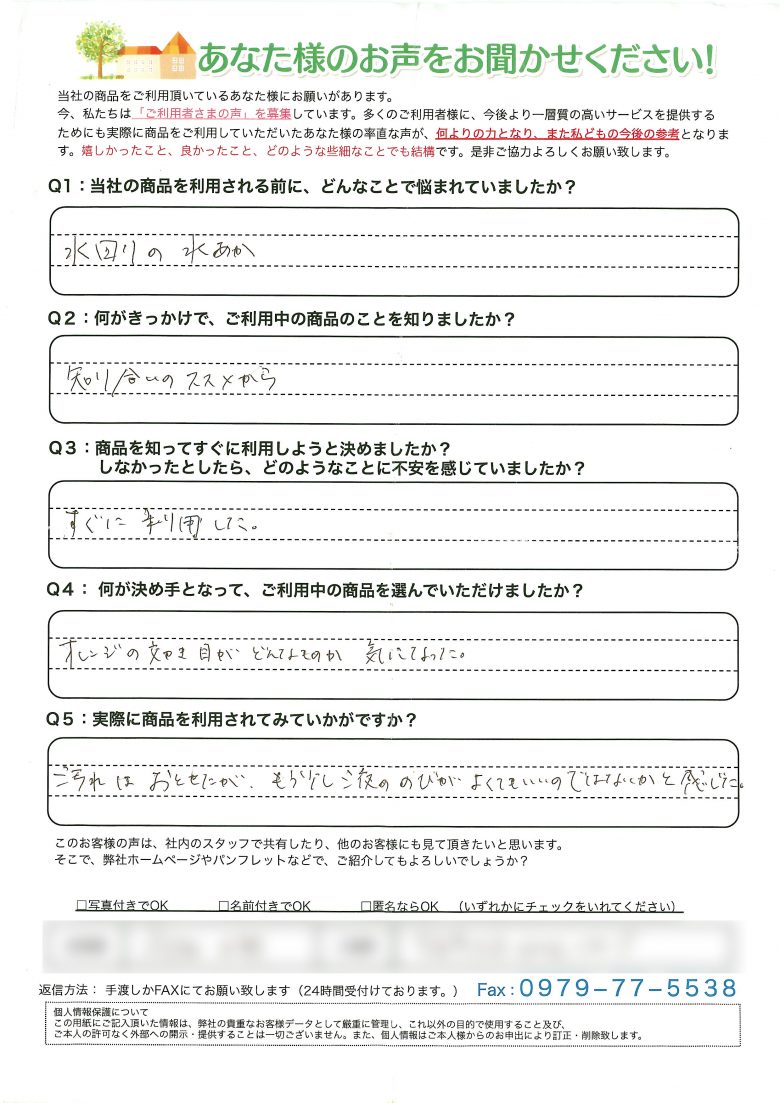 あなた様のお声をお聞かせください!
当社の商品をご利用頂いているあなた様にお願いがあります。
今、私たちは「ご利用者さまの声」を募集しています。多くのご利用者様に、今後より一層質の高いサービスを提供する
ためにも実際に商品をご利用していただいたあなた様の率直な声が、何よりの力となり、また私どもの今後の参考となりま
す。嬉しかったこと、良かったこと、どのような些細なことでも結構です。是非ご協力よろしくお願い致します。
Q1：当社の商品を利用される前に、どんなことで悩まれていましたか？
水回りの 水あか
Q2：何がきっかけで、ご利用中の商品のことを知りましたか？
知り合いのススメから
Q3：商品を知ってすぐに利用しようと決めましたか？
しなかったとしたら、どのようなことに不安を感じていましたか？
すぐに 利用した。
Q4： 何が決め手となって、ご利用中の商品を選んでいただけましたか？
オレンジの効き目が どんなものか 気になった。
Q5：実際に商品を利用されてみていかがですか？
汚れは おとせたが、もう少し液ののびがよくてもいいのではないかと感じた。
このお客様の声は、社内のスタッフで共有したり、他のお客様にも見て頂きたいと思います。
そこで、弊社ホームページやパンフレットなどで、ご紹介してもよろしいでしょうか？
□写真付きでOK □名前付きでOK □匿名ならOK （いずれかにチェックをいれてください）
返信方法： 手渡しかFAXにてお願い致します（24時間受付けております。） Fax：0979-77-5538
個人情報保護について
この用紙にご記入頂いた情報は、弊社の貴重なお客様データとして厳重に管理し、これ以外の目的で使用すること及び、
ご本人の許可なく外部への開示・提供することは一切ございません。また、個人情報はご本人様からのお申出により訂正・削除致します。